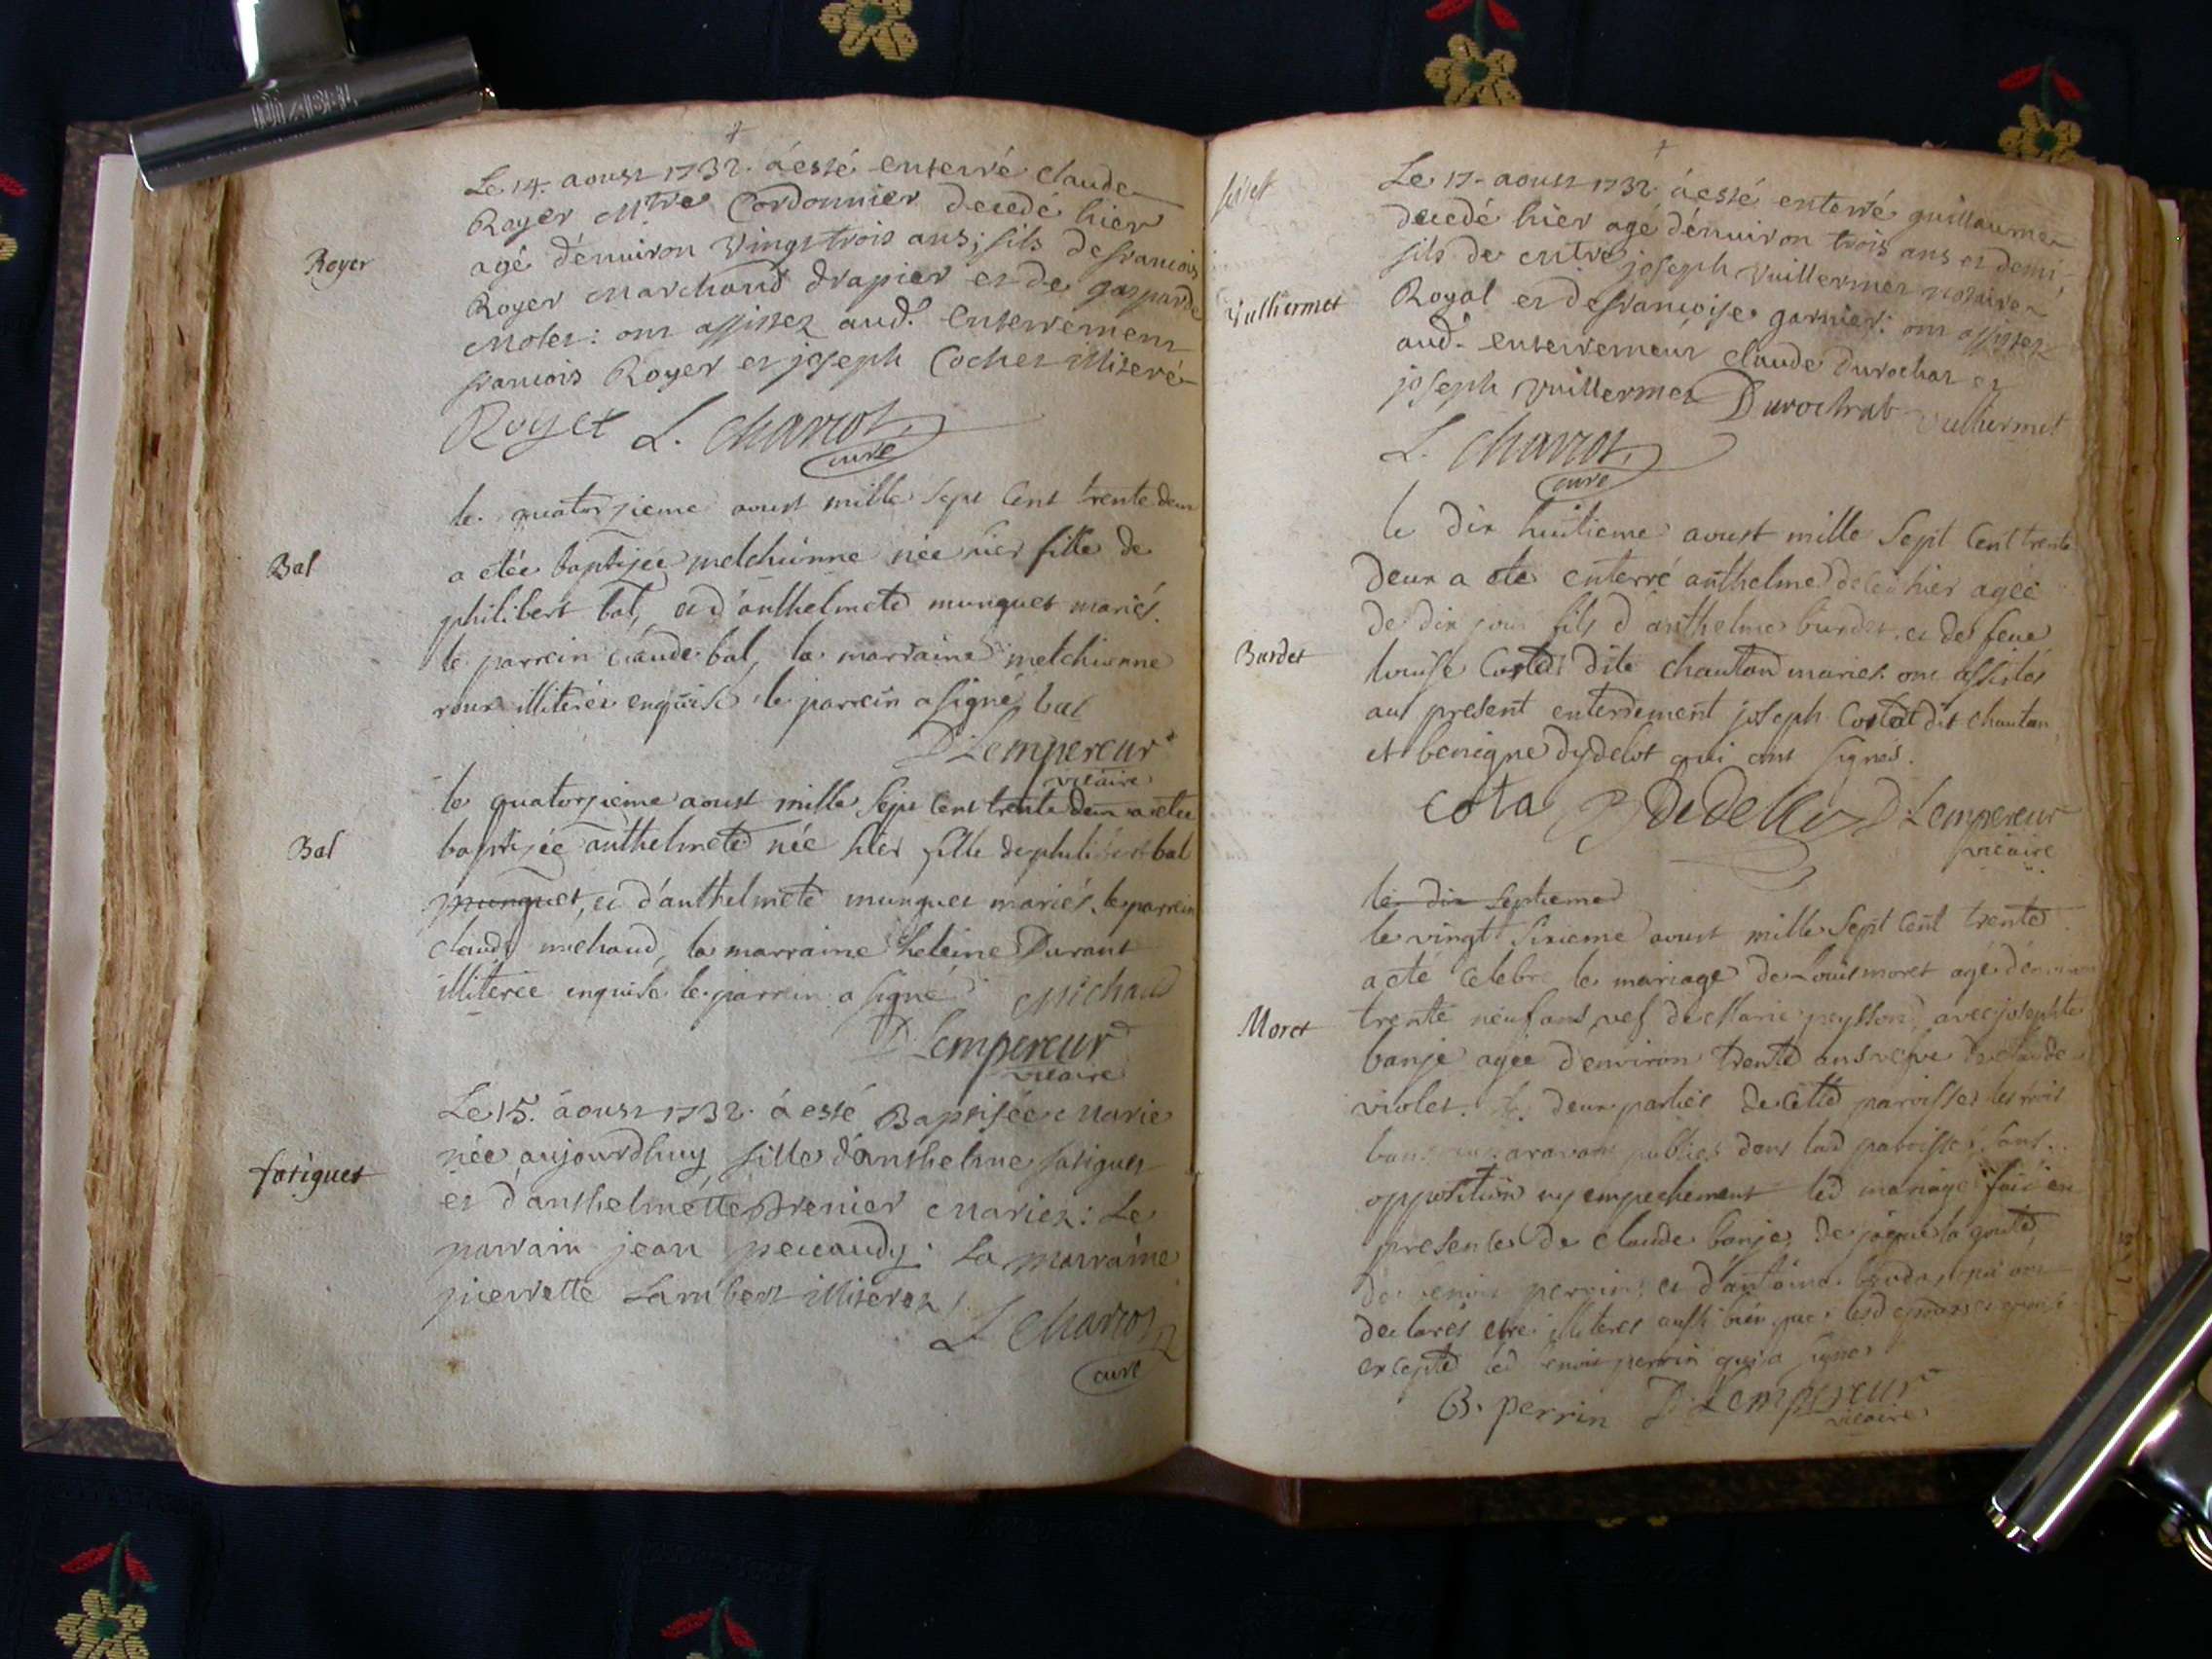 DIABEL
Le 14. aoust 1732. a esté enterré claude
Royer Mtre Cordonnier decedé hier
Royer
agé d'enuiron Vingt trois ans; fils de francois
Royer Marchand drapier et de gasparde
Molet: ont assistez aud. Enterrement
francois Royer et joseph Cochet illiteré
Royet L. Charcot
curé
le quatorzieme aoust mille sept Cent trente deux
Bal
a etée baptisée melchionne née hier fille de
philibert bal, et d'anthelmete munguet mariés.
le parrein claude bal, la marraine melchionne
roux illiterée enquise le parrein a signé, bal
D Lempereur
vicaire
le quatorzieme aoust mille sept Cent trente deux a etee
Bal
baptisée anthelmete née hier fille de philibert bal
munguet, et d'anthelmete munguet mariés. le parrein
claude michaud, la marraine heleine Durant
illiteree enquise le parrein a signé Michaud
D Lempereur
vicaire
Le 15. aoust 1732. a esté Baptisée Marie
née aujourdhuy fille d'anthelme fatiguet
fatiguet
et d'anthelmette Drenier Mariez: Le
parrain jean peccaudy: La marraine
pierrette Lambert illiterez
L Charcot
curé
Le 17. aoust 1732. a esté enterré guillaume
decedé hier agé d'enuiron trois ans et demi
fils de Mtre joseph Vuillermet notaire
Vulliermet
Royal et de francoise garnier: ont assistez
aud. enterrement claude Durochat et
joseph Vuillermet Durochat Vulliermet
L. Charcot
curé
le dix huitieme aoust mille Sept Cent trente
deux a ete enterré anthelme decedé hier agée
de dix jour fils d'anthelme burdet et de feue
Burdet
louise Costat dite chautan mariés. ont assistés
au present enterrement joseph Costat dit chautan,
et benigne dydelot qui ont signés.
Cota Dedelot D Lempereur
vicaire
le dix septieme
le vingt sixieme aoust mille Sept Cent trente
a eté celebré le mariage de Louis moret agé d'environ
Moret
trente neuf ans vef de Marie peysson, avec josephte
banje agée d'environ trente ans vefve de claude
violet. les deux parties de cette paroisse les trois
bans auparavant publiés dans lad paroisse sans
opposition ny empechement led mariage fait en
presence de claude banje, de jaque la goute,
de benoit perrin; et d'antoine qui ont
declarés etre illiterés aussi bien que lesd
excepté led benoit perrin qui a signé
B. perrin D Lempereur
vicaire